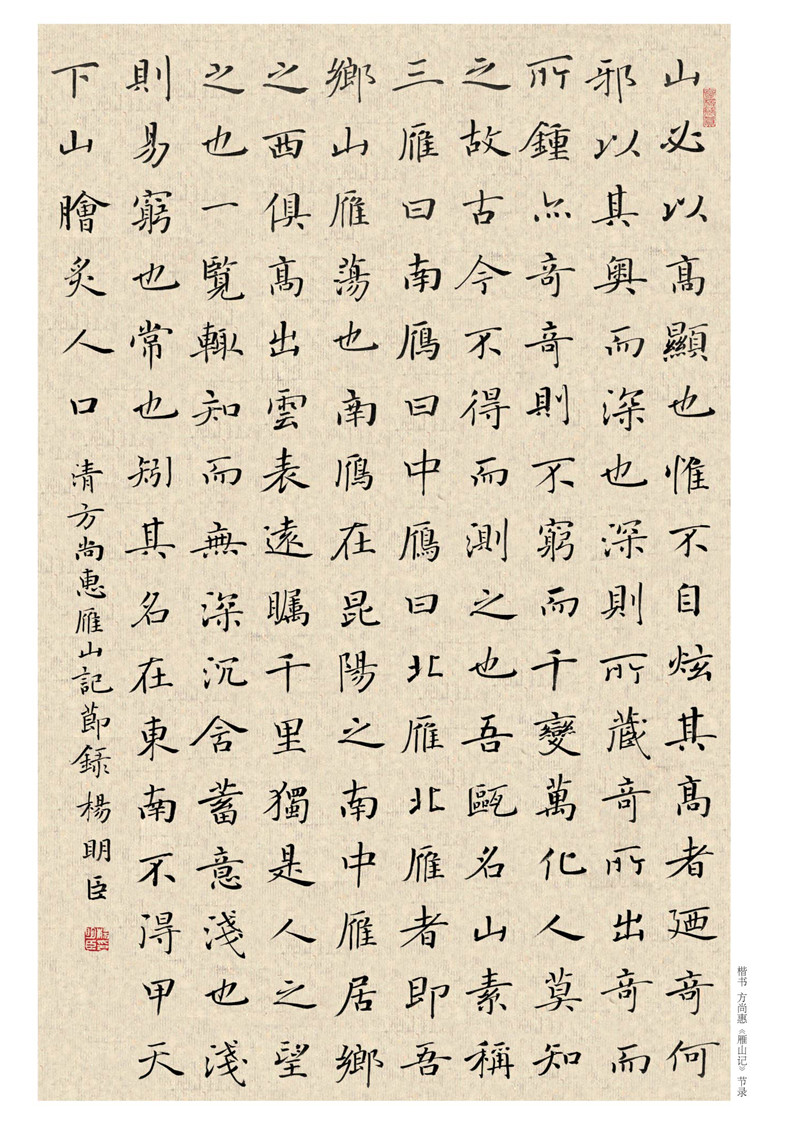 山必以高顯也惟不自炫其高者廼奇何
邪以其奥而深也深則所藏奇所出奇而
所鍾亦奇奇則不窮而千變萬化人莫知
之故古今不得而測之也吾甌名山素稱
三雁曰南鴈曰中鴈曰北雁北雁者即吾
鄉山雁蕩也南鴈在昆陽之南中雁居鄉
之西俱高出雲表遠矚千里獨是人之望
之也一覽輒知而無深沉含蓄意淺也淺
則易窮也常也矧其名在東南不得甲天
下山膾炙人口
清方尚惠雁山記節録楊明臣
楷书 方尚惠《雁山记》节录